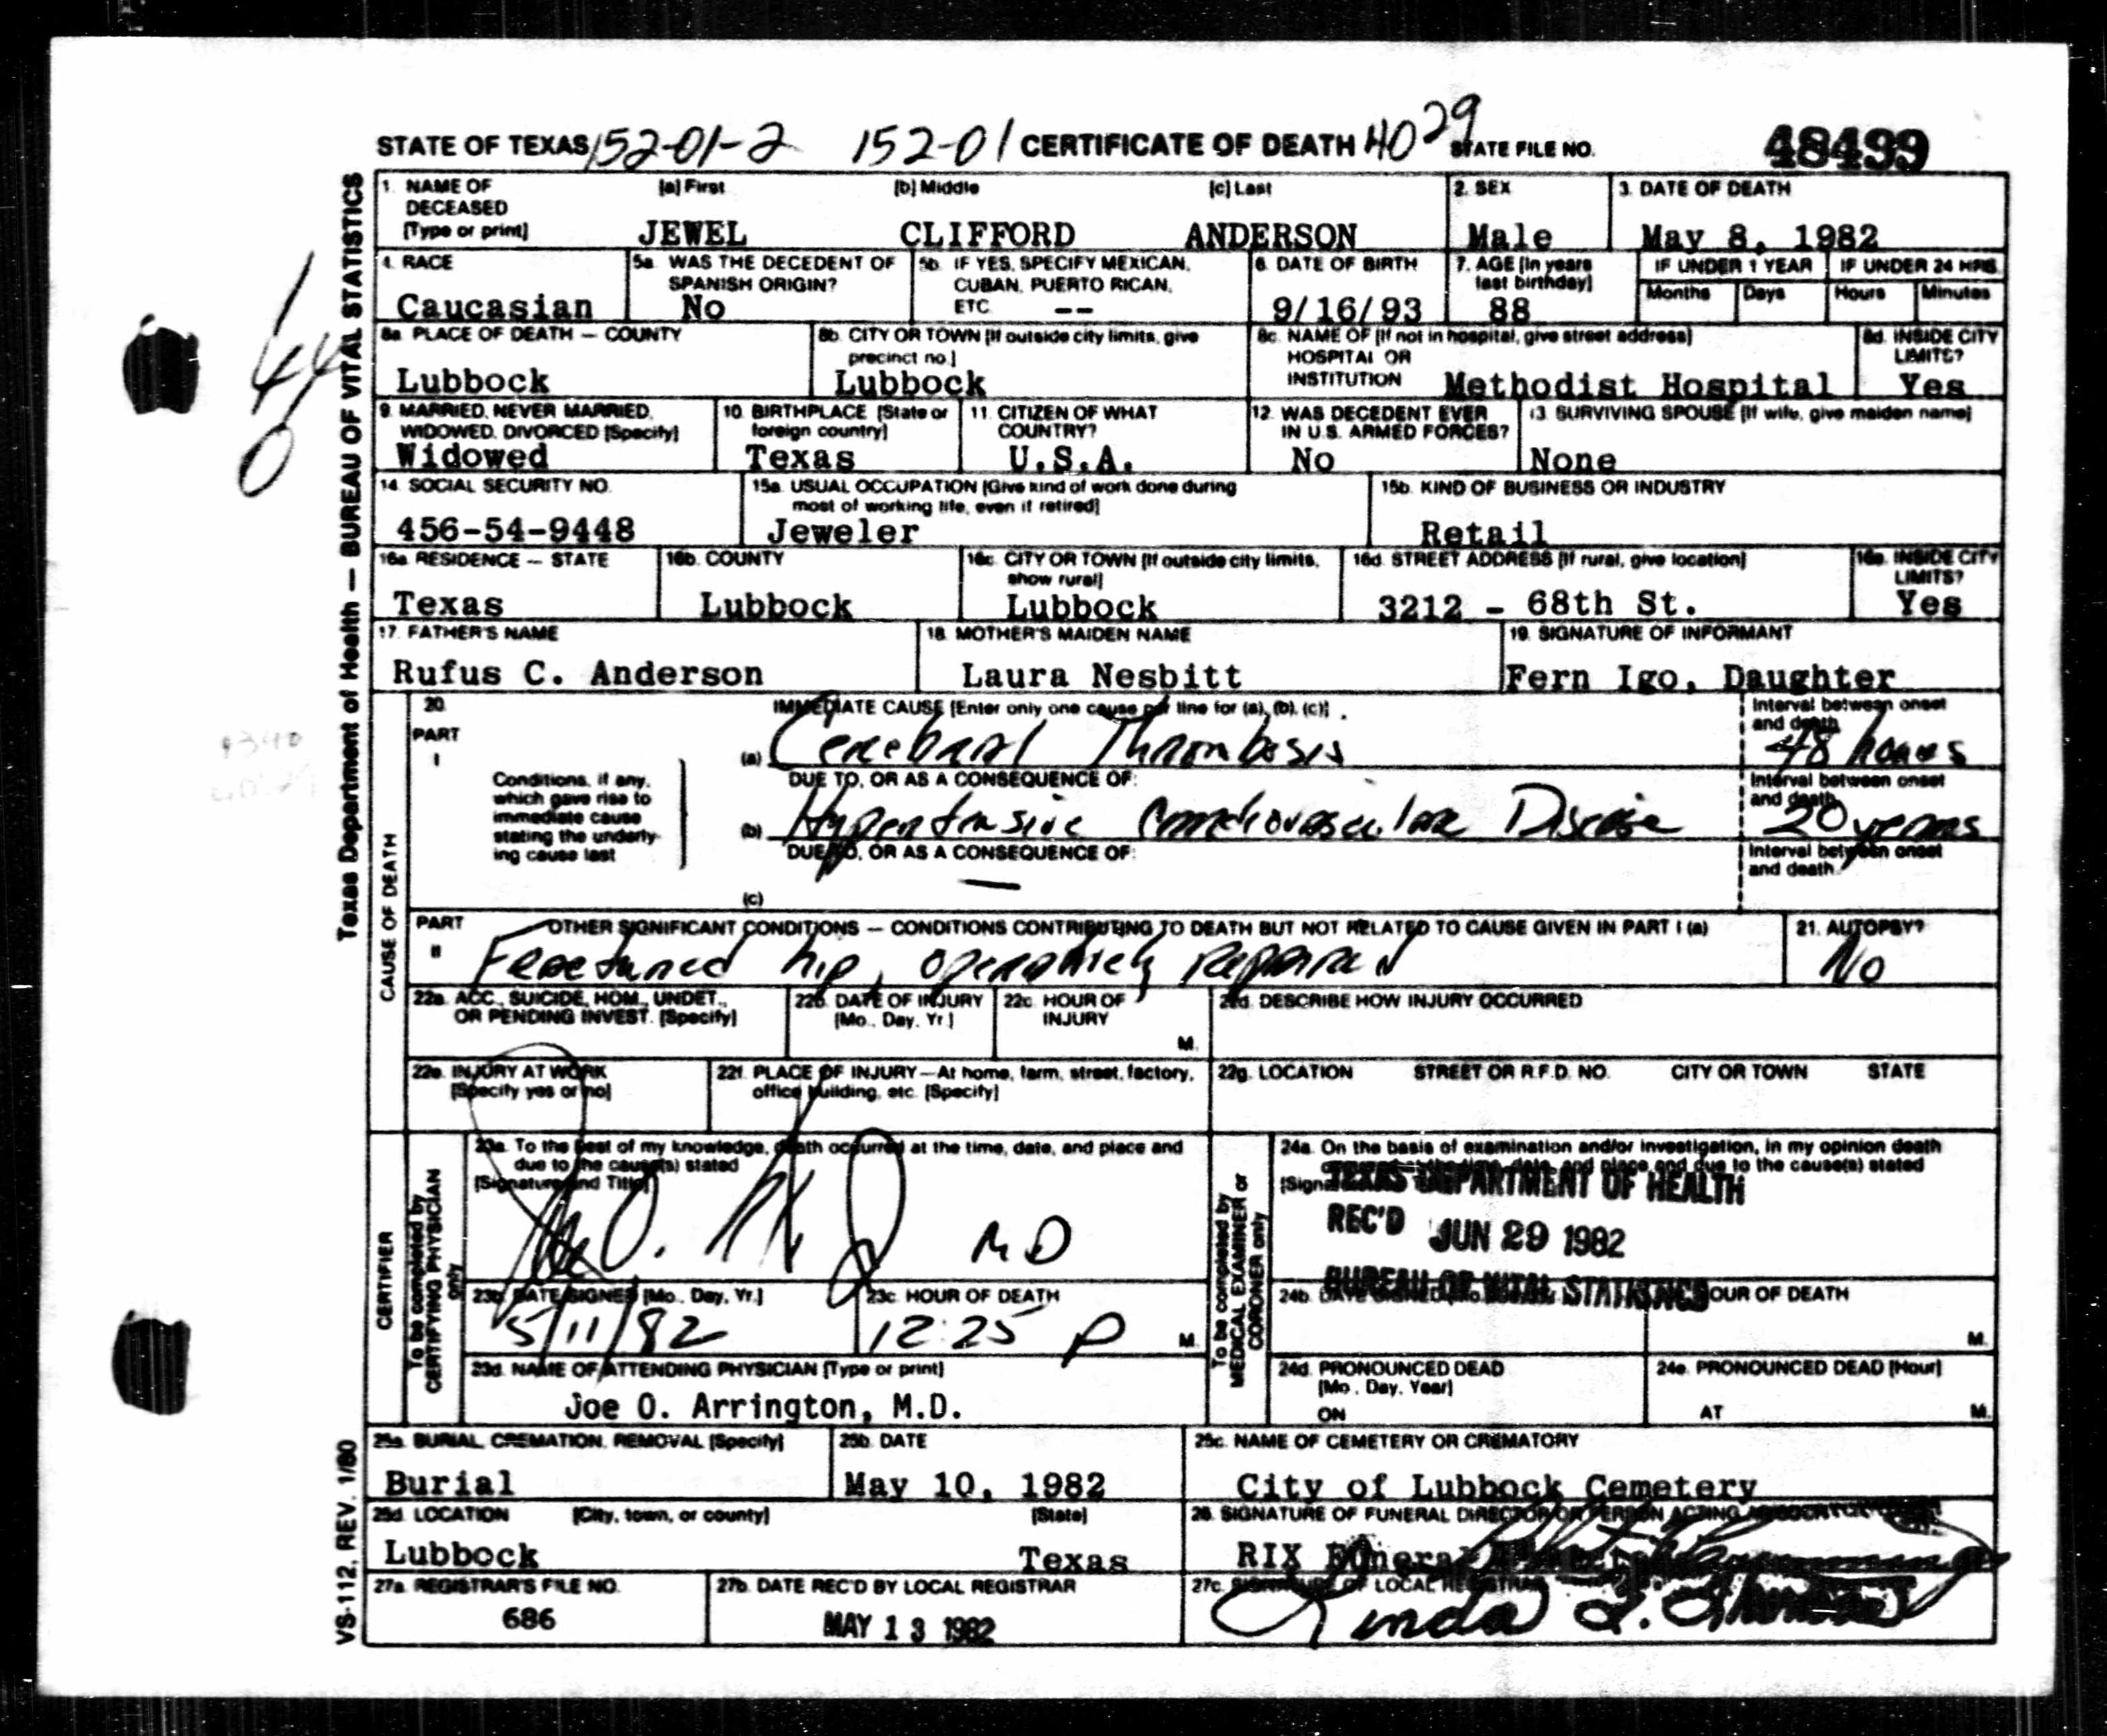 STATE OF TEXAS 152-01-2 152-01 CERTIFICATE OF DEATH 4029 STATE FILE NO. 48499
Texas Department of Health — BUREAU OF VITAL STATISTICS
1. NAME OF DECEASED [Type or print] [a] First [b] Middle [c] Last 2. SEX 3. DATE OF DEATH
JEWEL CLIFFORD ANDERSON Male May 8, 1982
4. RACE 5a. WAS THE DECEDENT OF SPANISH ORIGIN? 5b. IF YES, SPECIFY MEXICAN, CUBAN, PUERTO RICAN, ETC 6. DATE OF BIRTH 7. AGE [In years last birthday] IF UNDER 1 YEAR IF UNDER 24 HRS.
Months Days Hours Minutes
Caucasian No -- 9/16/93 88
8a. PLACE OF DEATH — COUNTY 8b. CITY OR TOWN [If outside city limits, give precinct no.] 8c. NAME OF [If not in hospital, give street address] HOSPITAL OR INSTITUTION 8d. INSIDE CITY LIMITS?
Lubbock Lubbock Methodist Hospital Yes
9. MARRIED, NEVER MARRIED, WIDOWED, DIVORCED [Specify] 10. BIRTHPLACE [State or foreign country] 11. CITIZEN OF WHAT COUNTRY? 12. WAS DECEDENT EVER IN U.S. ARMED FORCES? 13. SURVIVING SPOUSE [If wife, give maiden name]
Widowed Texas U.S.A. No None
14. SOCIAL SECURITY NO. 15a. USUAL OCCUPATION [Give kind of work done during most of working life, even if retired] 15b. KIND OF BUSINESS OR INDUSTRY
456-54-9448 Jeweler Retail
16a. RESIDENCE — STATE 16b. COUNTY 16c. CITY OR TOWN [If outside city limits, show rural] 16d. STREET ADDRESS [If rural, give location] 16e. INSIDE CITY LIMITS?
Texas Lubbock Lubbock 3212 - 68th St. Yes
17. FATHER'S NAME 18. MOTHER'S MAIDEN NAME 19. SIGNATURE OF INFORMANT
Rufus C. Anderson Laura Nesbitt Fern Igo, Daughter
CAUSE OF DEATH
20. PART I IMMEDIATE CAUSE [Enter only one cause per line for (a), (b), (c)] Interval between onset and death
(a) Cerebral Thrombosis 48 hours
Conditions, if any, which gave rise to immediate cause stating the underlying cause last
DUE TO, OR AS A CONSEQUENCE OF: Interval between onset and death
(b) Hypertensive Cardiovascular Disease 20 years
DUE TO, OR AS A CONSEQUENCE OF: Interval between onset and death
(c) —
PART II OTHER SIGNIFICANT CONDITIONS — CONDITIONS CONTRIBUTING TO DEATH BUT NOT RELATED TO CAUSE GIVEN IN PART I (a) 21. AUTOPSY?
Fractured hip, operatively repaired No
22a. ACC., SUICIDE, HOM., UNDET., OR PENDING INVEST. [Specify] 22b. DATE OF INJURY [Mo., Day, Yr.] 22c. HOUR OF INJURY M. 22d. DESCRIBE HOW INJURY OCCURRED
22e. INJURY AT WORK [Specify yes or no] 22f. PLACE OF INJURY—At home, farm, street, factory, office building, etc. [Specify] 22g. LOCATION STREET OR R.F.D. NO. CITY OR TOWN STATE
CERTIFIER
To be completed by CERTIFYING PHYSICIAN only
23a. To the best of my knowledge, death occurred at the time, date, and place and due to the cause(s) stated
[Signature and Title]
MD
23b. DATE SIGNED [Mo., Day, Yr.] 23c. HOUR OF DEATH
5/11/82 12:25 P M.
23d. NAME OF ATTENDING PHYSICIAN [Type or print]
Joe O. Arrington, M.D.
To be completed by MEDICAL EXAMINER or CORONER only
24a. On the basis of examination and/or investigation, in my opinion death occurred at the time, date, and place and due to the cause(s) stated
TEXAS DEPARTMENT OF HEALTH
REC'D JUN 29 1982
BUREAU OF VITAL STATISTICS
24b. DATE SIGNED HOUR OF DEATH M.
24d. PRONOUNCED DEAD [Mo., Day, Year] ON 24e. PRONOUNCED DEAD [Hour] AT M.
25a. BURIAL, CREMATION, REMOVAL [Specify] 25b. DATE 25c. NAME OF CEMETERY OR CREMATORY
Burial May 10, 1982 City of Lubbock Cemetery
25d. LOCATION [City, town, or county] [State] 26. SIGNATURE OF FUNERAL DIRECTOR OR PERSON ACTING AS SUCH
Lubbock Texas RIX Funeral
27a. REGISTRAR'S FILE NO. 27b. DATE REC'D BY LOCAL REGISTRAR 27c. SIGNATURE OF LOCAL REGISTRAR
686 MAY 13 1982 Linda
VS-112, REV. 1/80